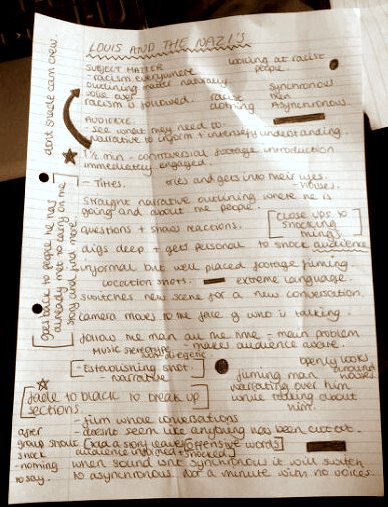 LOUIS AND THE NAZI'S
SUBJECT MATTER
- racism everywhere
looking at racist people.
outlining matter naturally
voice over
racism is followed.
racist clothing
Synchronous
Asynchronous.
AUDIENCE.
- see what they need to.
narrative to inform + intensify understanding.
1½ min - controversial footage introduction
immediately engaged.
- Times.
tries and gets into their lives.
straight narrative outlining where he is
going and about the people.
questions + shows reactions.
[close ups to shocking things]
digs deep + gets personal to shock audience
informal but well placed footage filming.
location shots.
extreme language.
switches new scene for a new conversation.
camera moves to the face of who is talking.
follows the man all the time - main problem
makes audience aware.
music stereotype
[- Establishing shot.
- narrative]
filming man
narrating over him
while talking about
him.
openly looks around houses
[fade to black to break up
sections.
- film whole conversations
- doesn't seem like anything has been cut out.
after group shout
shock
- nothing to say.
[kid a song leaves audience informed + shocked]
[offensive words]
when sound isnt synchronous it will switch
to asynchronous. Not a minute with no voices.
dont shade cam crew.
[goes back to people he has
already met to carry on the
story and find more]